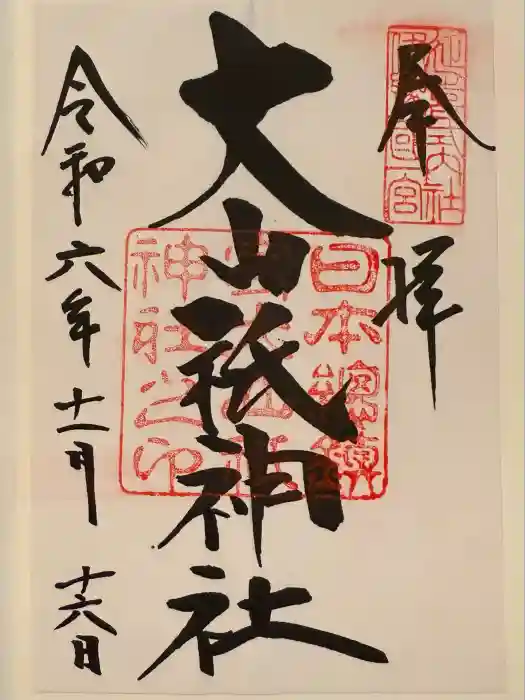 奉拝
延喜式大社
伊豫國一宮
大山祇神社
日本總鎮
守大山
神社之印
令和六年十一月十六日